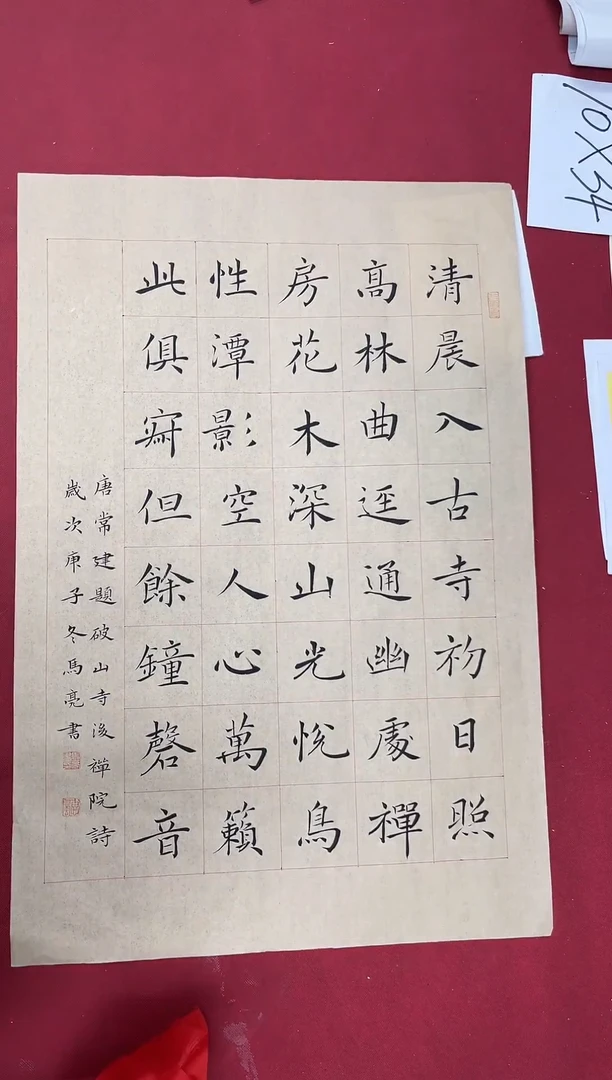 清晨入古寺初日照
高林曲迳通幽處禪
房花木深山光悅鳥
性潭影空人心萬籟
此俱寂但餘鐘磬音
唐常建題破山寺後禪院詩
歲次庚子冬馬亮書
10X34